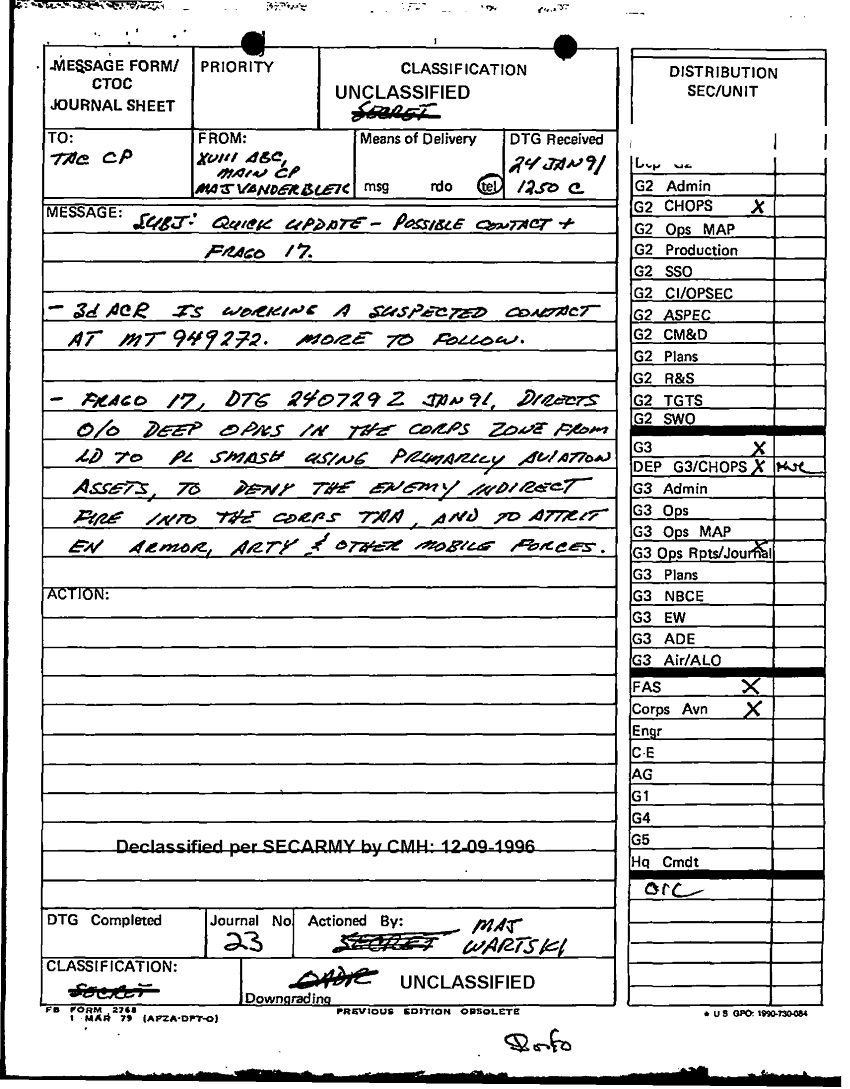 MESSAGE FORM/ CTOC JOURNAL SHEET
PRIORITY
CLASSIFICATION
UNCLASSIFIED
SECRET
TO:
TAC CP
FROM:
XVIII ABC,
MAIN CP
MAJ VANDERBLEIK
Means of Delivery
msg rdo tel
DTG Received
24 JAN 91
1250 C
MESSAGE: SUBJ: QUICK UPDATE - POSSIBLE CONTACT +
FRAGO 17.
- 3d ACR IS WORKING A SUSPECTED CONTACT
AT MT 949272. MORE TO FOLLOW.
- FRAGO 17, DTG 240729Z JAN 91, DIRECTS
O/O DEEP OPNS IN THE CORPS ZONE FROM
LD TO PL SMASH USING PRIMARILY AVIATION
ASSETS, TO DENY THE ENEMY INDIRECT
FIRE INTO THE CORPS TAA, AND TO ATTRIT
EN ARMOR, ARTY & OTHER MOBILE FORCES.
ACTION:
Declassified per SECARMY by CMH: 12-09-1996
DTG Completed
Journal No
23
Actioned By:
SECRET
MAJ
WARTSKI
CLASSIFICATION:
SECRET
OADR
UNCLASSIFIED
Downgrading
FB FORM 2768
1 MAR 79 (AFZA-DPT-O)
PREVIOUS EDITION OBSOLETE
DISTRIBUTION
SEC/UNIT
Dep G2
G2 Admin
G2 CHOPS X
G2 Ops MAP
G2 Production
G2 SSO
G2 CI/OPSEC
G2 ASPEC
G2 CM&D
G2 Plans
G2 R&S
G2 TGTS
G2 SWO
G3 X
DEP G3/CHOPS X
G3 Admin
G3 Ops
G3 Ops MAP
G3 Ops Rpts/Journal X
G3 Plans
G3 NBCE
G3 EW
G3 ADE
G3 Air/ALO
FAS X
Corps Avn X
Engr
C-E
AG
G1
G4
G5
Hq Cmdt
★ U S GPO: 1990-730-084